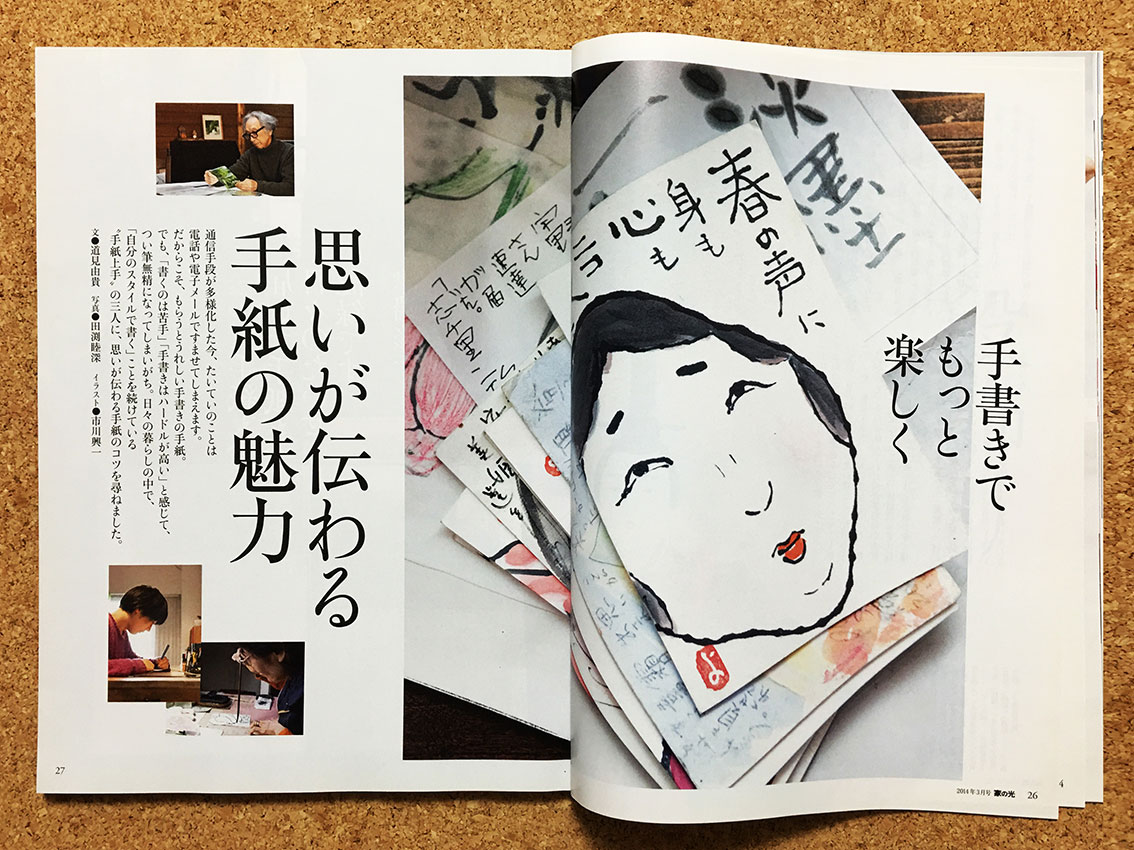 手書きで
もっと
楽しく
淡墨
春の声に
身も
心も
2014年3月号 家の光 26
4
思いが伝わる
手紙の魅力
通信手段が多様化した今、たいていのことは
電話や電子メールですませてしまえます。
だからこそ、もらうとうれしい手書きの手紙。
でも、「書くのは苦手」「手書きはハードルが高い」と感じて、
つい筆無精になってしまいがち。日々の暮らしの中で、
「自分のスタイルで書く」ことを続けている
“手紙上手”の三人に、思いが伝わる手紙のコツを尋ねました。
文●道見由貴 写真●田渕睦深 イラスト●市川興一
27